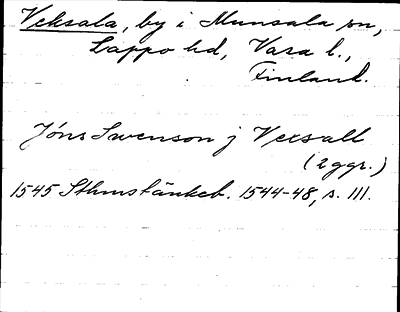 Veksala, by i Munsala sn,
Lappo hd, Vasa l.,
Finland.
Jöns Swenson j Vexsall
(2 ggr.)
1545 Sthms tänkeb. 1544-48, s. 111.